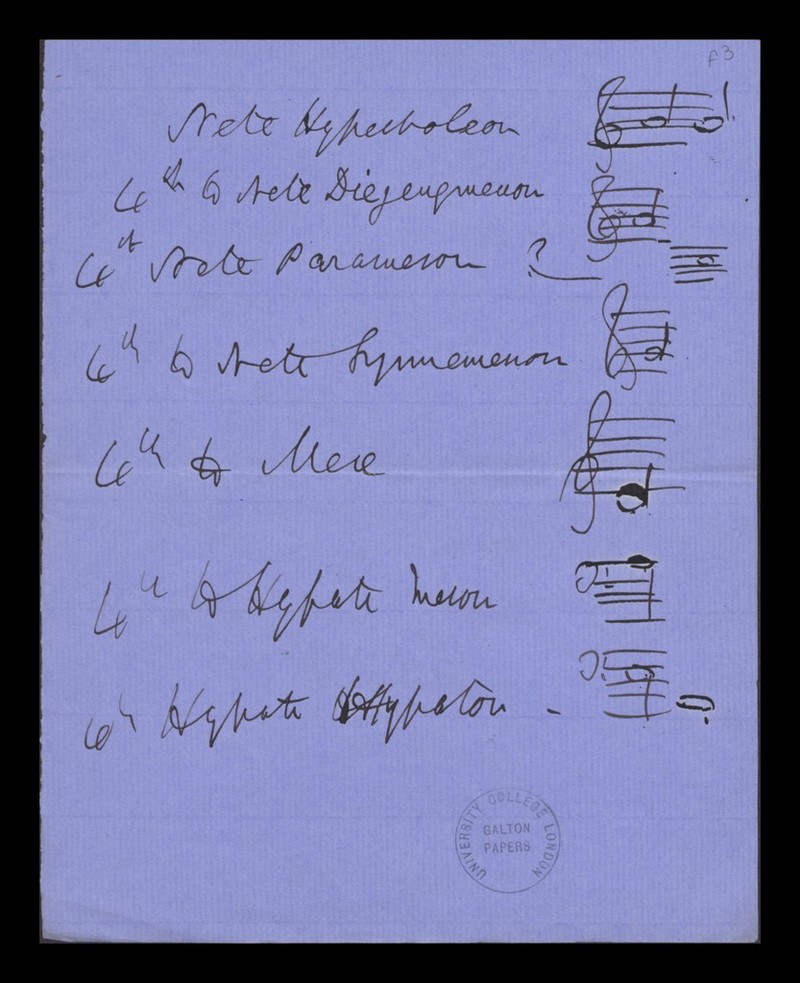 f3
Nete Hyperboleon
4th to Nete Diezeugmenon
4th Nete Parameson ?
4th to Nete Synnemenon
4th to Mese
4th to Hypate Meson
4th Hypate Hypaton -
UNIVERSITY COLLEGE LONDON
GALTON
PAPERS